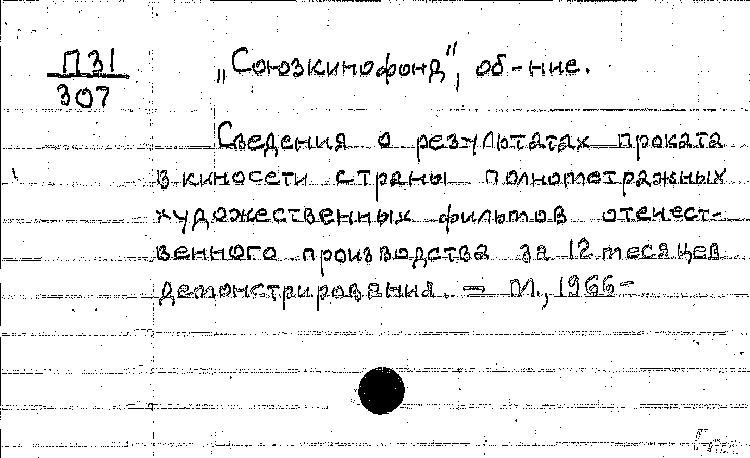 П31
307
„Союзкинофонд", об-ние.
Сведения о результатах проката
в киносети страны полнометражных
художественных фильмов отечест-
венного производства за 12 месяцев
демонстрирования. – М., 1966–